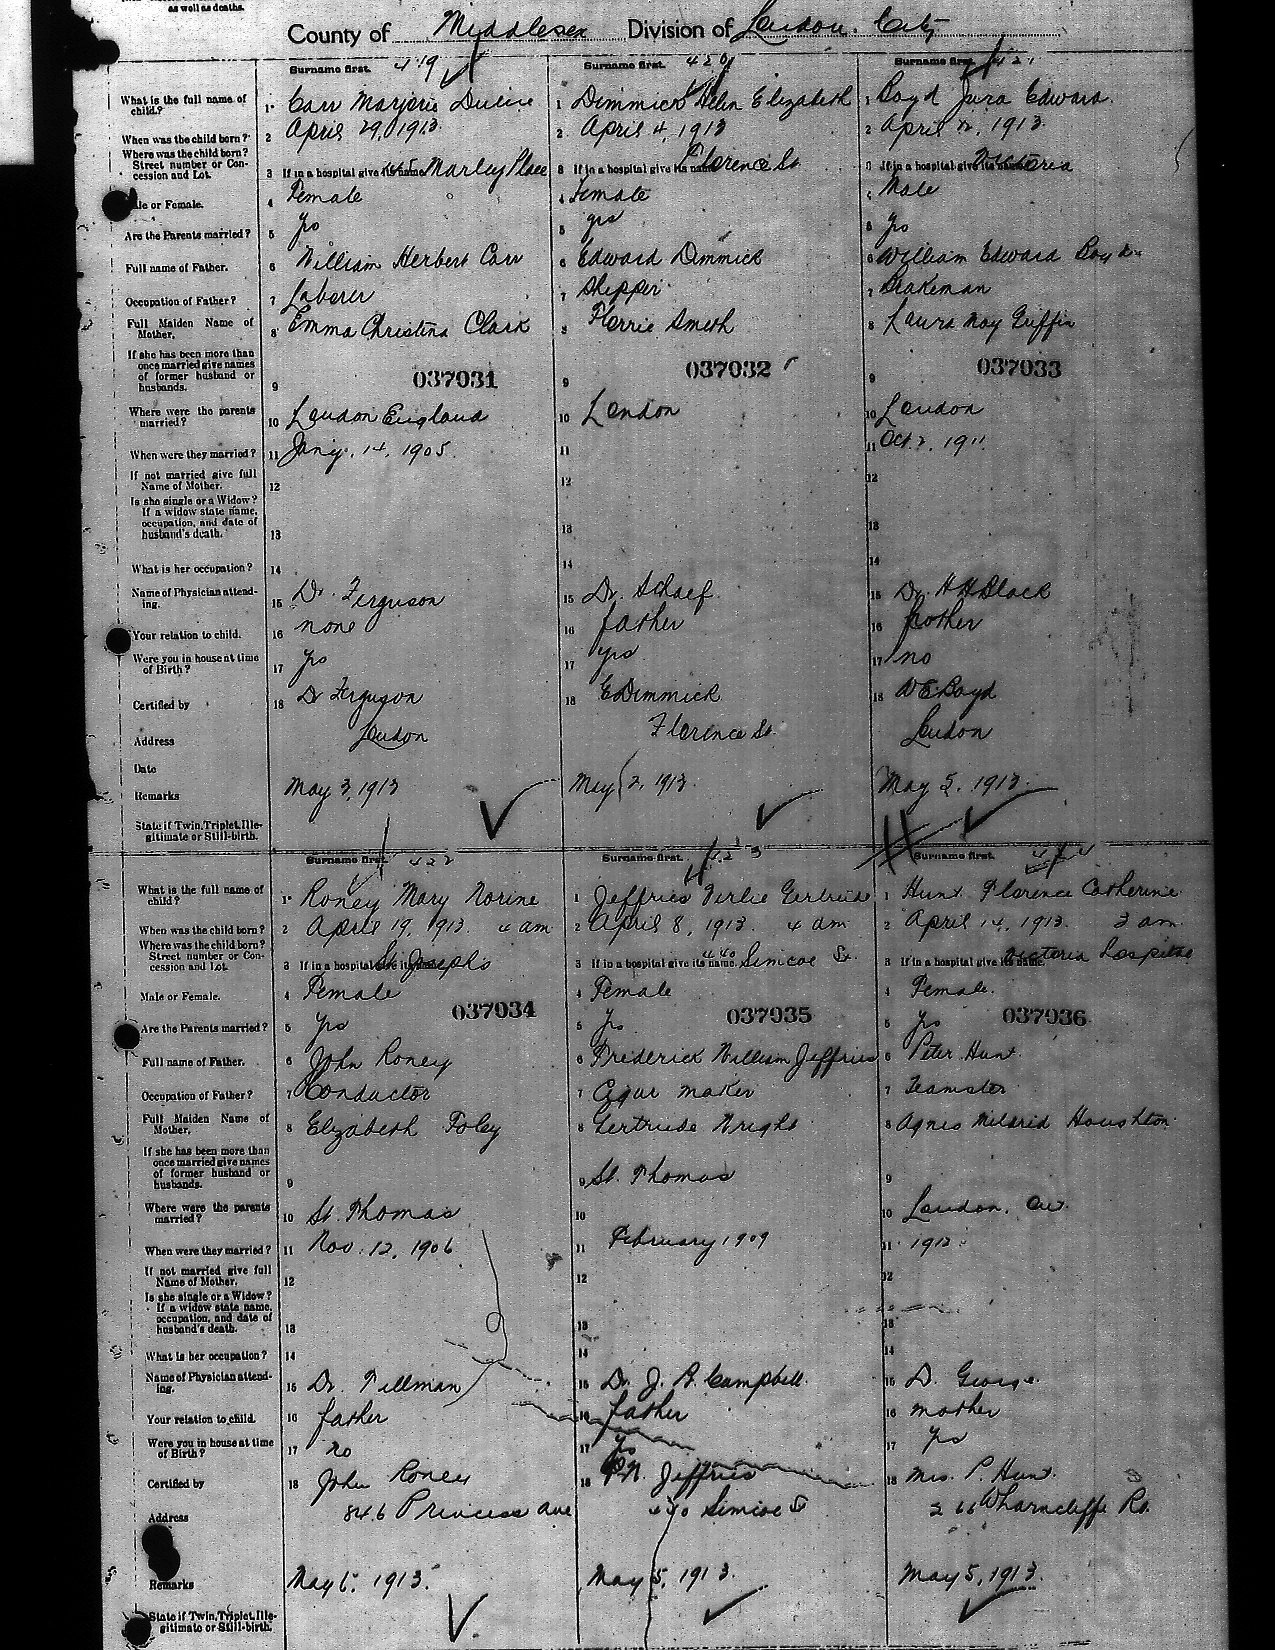 as well as deaths.
County of Middlesex Division of London City
Surname first. 419 Surname first. 420 Surname first. 421
What is the full name of child? 1 Carr Marjorie 1 Dimmick Helen Elizabeth 1 Boyd Edward
When was the child born? 2 April 29, 1913 2 April 4, 1913 2 April 12, 1913
Where was the child born? Street number or Concession and Lot. 3 If in a hospital give its name Marley Place 3 If in a hospital give its name Florence St 3 If in a hospital give its name Victoria
Male or Female. 4 Female 4 Female Male
Are the Parents married? 5 Yes 5 yes 5 Yes
Full name of Father. 6 William Herbert Carr 6 Edward Dimmick 6 William Edward Boyd
Occupation of Father? 7 Laborer 7 Shipper 7 Brakeman
Full Maiden Name of Mother. 8 Emma Christina Clark 8 Florrie Smith 8 Laura May Griffin
If she has been more than once married give names of former husband or husbands. 9 037031 9 037032 9 037033
Where were the parents married? 10 London England 10 London 10 London
When were they married? 11 Jany. 14, 1905 11 11 Oct 2, 1911
If not married give full Name of Mother. 12 12 12
Is she single or a Widow? If a widow state name, occupation, and date of husband's death. 13 13 13
What is her occupation? 14 14 14
Name of Physician attending. 15 Dr. Ferguson 15 Dr. Schaef 15 Dr. H H Black
Your relation to child. 16 none 16 father 16 father
Were you in house at time of Birth? 17 yes 17 yes 17 no
Certified by 18 Dr Ferguson 18 E Dimmick 18 W E Boyd
Address London Florence St. London
Date
Remarks May 3, 1913 May 2, 1913 May 5, 1913
State if Twin, Triplet, Illegitimate or Still-birth.
Surname first. 422 Surname first. 423 Surname first. 424
What is the full name of child? 1 Roney Mary Norine 1 Jeffries Verlie Gertrude 1 Hunt Florence Catherine
When was the child born? 2 April 19, 1913. 4 am 2 April 8, 1913. 4 am 2 April 14, 1913. 3 am
Where was the child born? Street number or Concession and Lot. 3 If in a hospital give its name St Josephs 3 If in a hospital give its name. 440 Simcoe St. 3 If in a hospital give its name. Victoria Hospital
Male or Female. 4 Female 4 Female 4 Female.
037034 037035 037036
Are the Parents married? 5 yes 5 Yes 5 yes
Full name of Father. 6 John Roney 6 Frederick William Jeffries 6 Peter Hunt
Occupation of Father? 7 Conductor 7 Cigar maker 7 Teamster
Full Maiden Name of Mother. 8 Elizabeth Foley 8 Gertrude Wright 8 Agnes Mildrid Houghton
If she has been more than once married give names of former husband or husbands. 9 9 St. Thomas 9
Where were the parents married? 10 St. Thomas 10 10 London, Ont.
When were they married? 11 Nov. 12, 1906 11 February 1909 11 1912
If not married give full Name of Mother. 12 12 12
Is she single or a Widow? If a widow state name, occupation, and date of husband's death. 13 13 13
What is her occupation? 14 14 14
Name of Physician attending. 15 Dr. Tillman 15 Dr. J. B. Campbell 15 D. George
Your relation to child. 16 father 16 father 16 mother
Were you in house at time of Birth? 17 no 17 yes 17 yes
Certified by 18 John Roney 18 F.W. Jeffries 18 Mrs. P. Hunt
Address 846 Princess Ave 440 Simcoe St 266 Wharncliffe Rd.
Remarks May 6, 1913. May 5, 1913. May 5, 1913.
State if Twin, Triplet, Illegitimate or Still-birth.